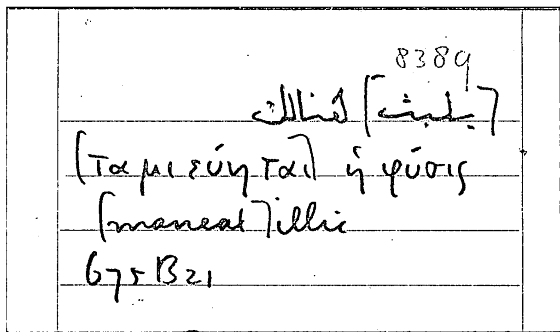 8389
[يلبث] هنالك
[ταμιεύηται] ἡ φύσις
[maneat] illic
675 B 21